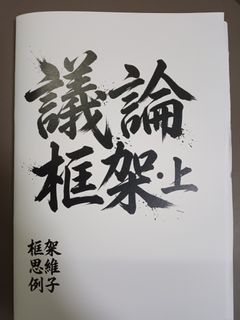 議論
框架·上
框架
思維
例子